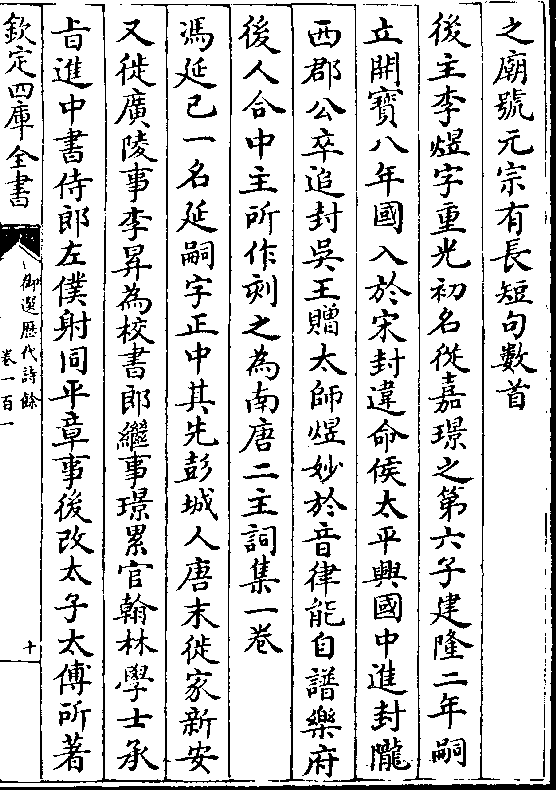 之廟號元宗有長短句數首
後主李煜字重光初名從嘉璟之第六子建隆二年嗣
立開寶八年國入於宋封違命侯太平興國中進封隴
西郡公卒追封吳王贈太師煜妙於音律能自譜樂府
後人合中主所作刻之為南唐二主詞集一卷
馮延已一名延嗣字正中其先彭城人唐末徙家新安
又徙廣陵事李昇為校書郎繼事璟累官翰林學士承
㫖進中書侍郎左僕射同平章事後改太子太傅所著
欽定四庫全書
御選歷代詩餘
卷一百一
十